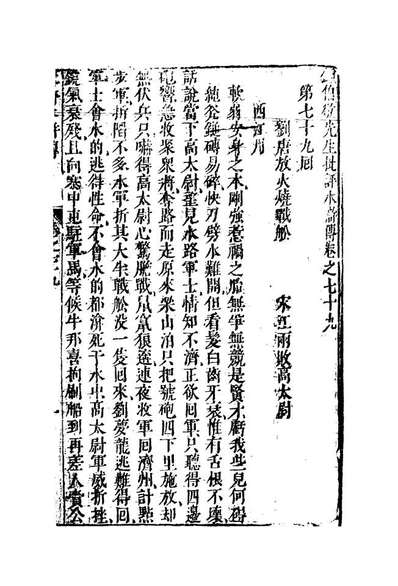 李卓吾先生批評水滸傳卷之七十九
第七十九囘
劉唐放火燒戰船　宋江兩敗高太尉
西江月
軟弱安身之本剛強惹禍之胎無爭無競是賢才虧我些兒何碍
鈍斧鎚磚易碎快刀劈水難開但看髮白齒牙衰惟有舌根不壞
話說當下高太尉望見水路軍士情知不濟正欲回軍只聽得四邊
砲響急收聚衆將奪路而走原來梁山泊只把號砲四下里施放却
無伏兵只嚇得高太尉心驚膽戰鼠竄狼奔連夜收軍回濟州計點
步軍折陷不多水軍折其大半戰船沒一隻回來劉夢龍逃難得回
軍士會水的逃得性命不會水的都渰死于水中高太尉軍威折挫
銳氣衰殘且向城中屯駐軍馬等候牛邦喜拘刷船到再差人賫公